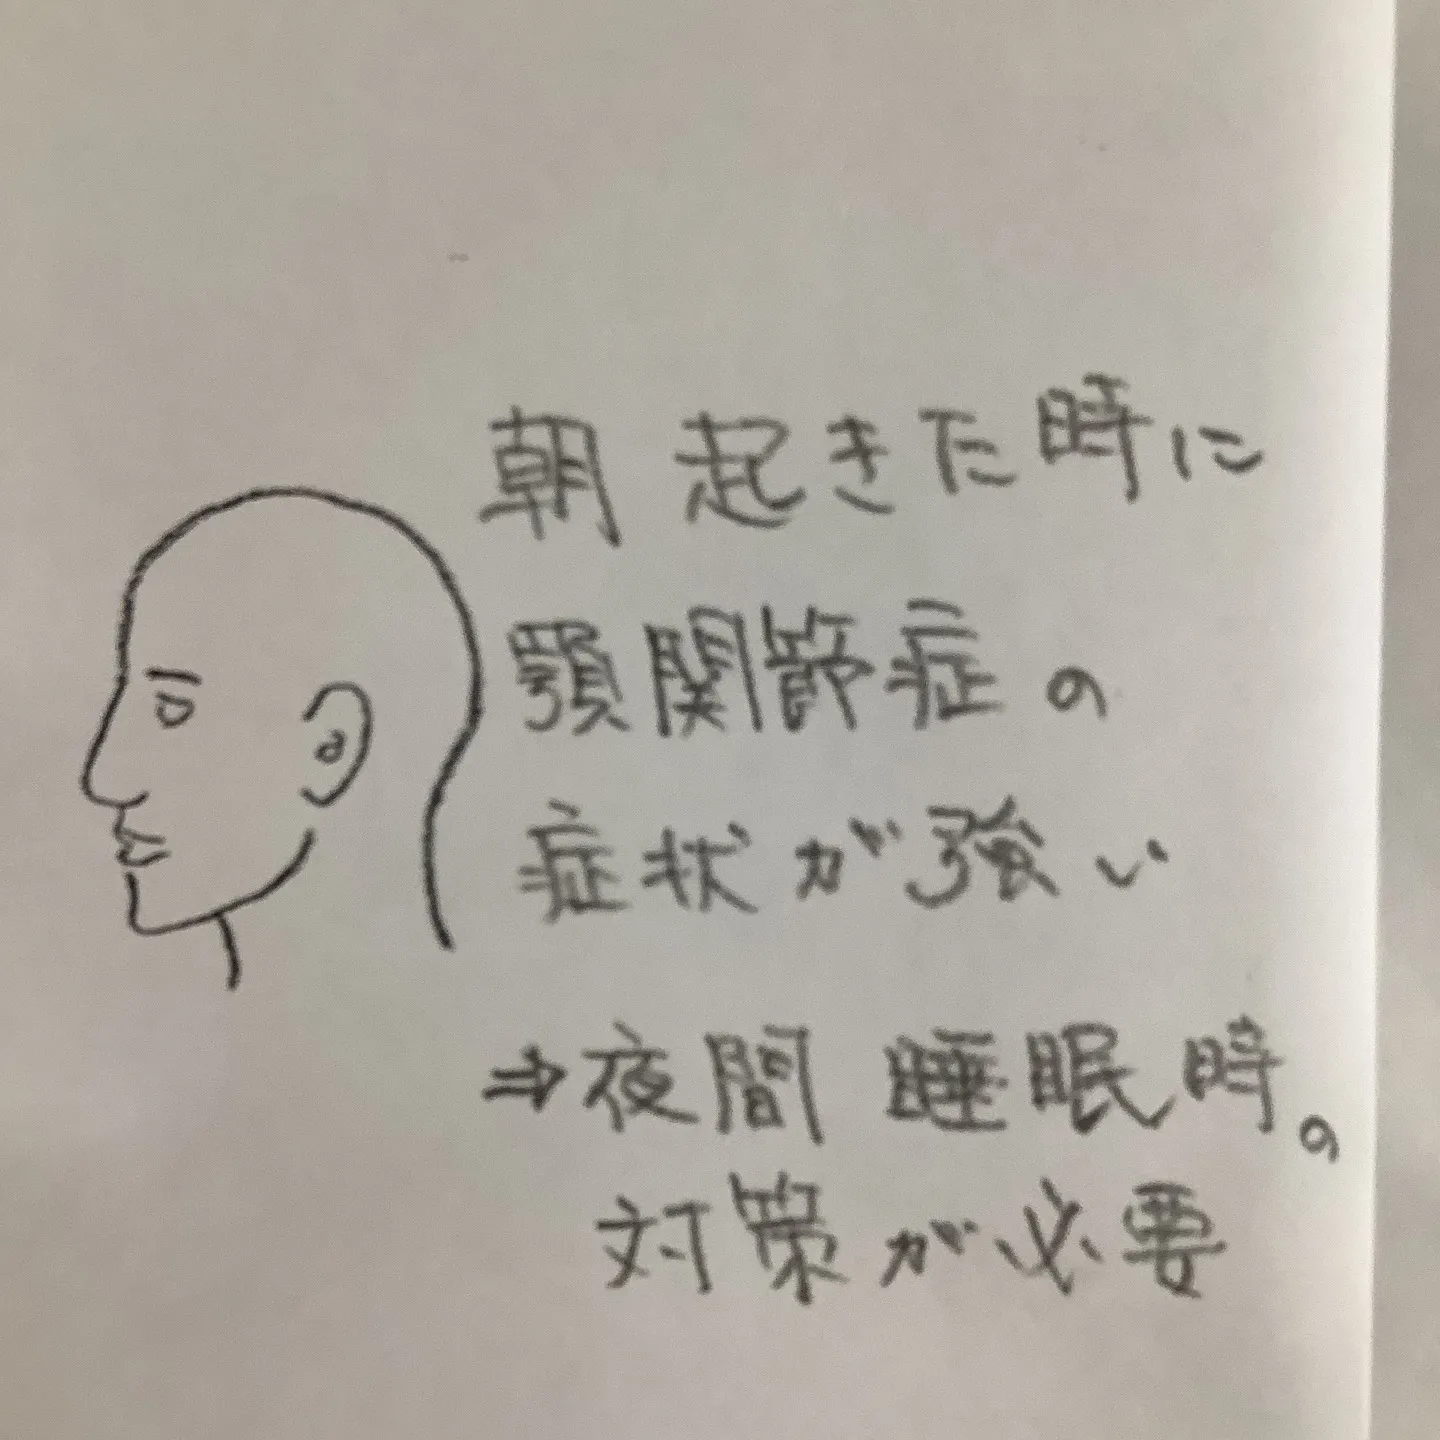 朝起きた時に
顎関節症の
症状が強い
⇒夜間睡眠時の
対策が必要